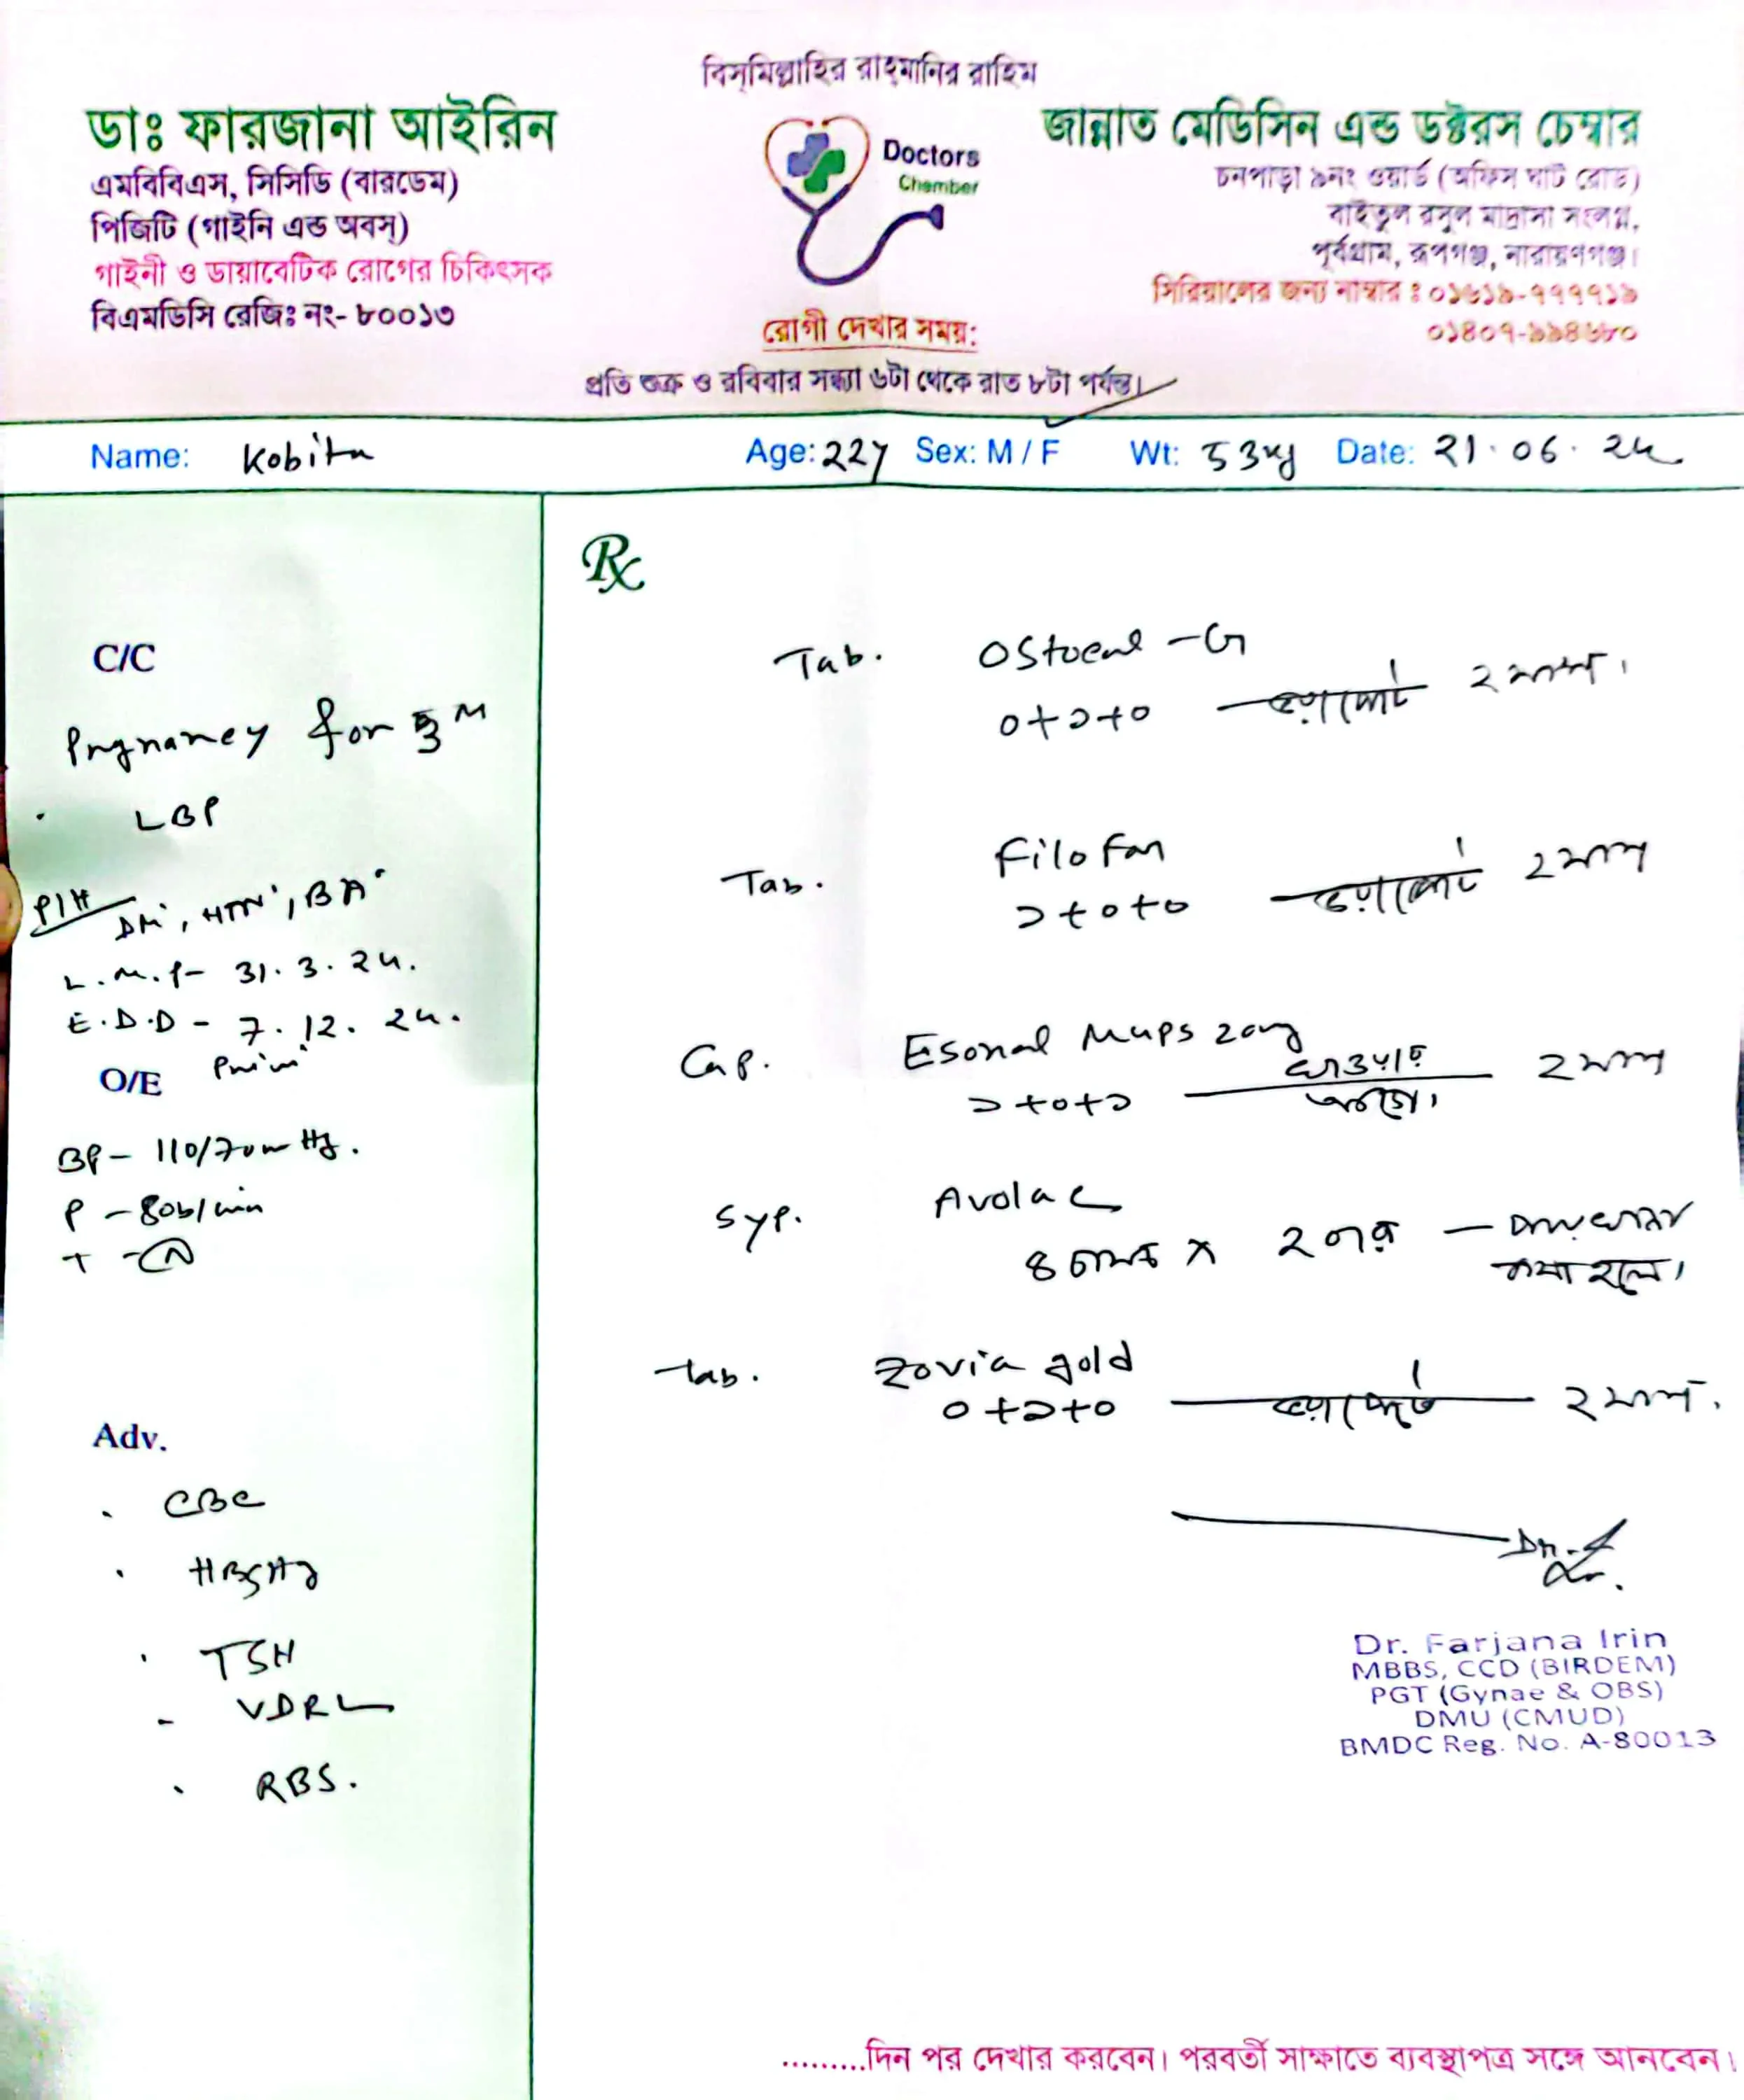 বিস্‌মিল্লাহির রাহ্‌মানির রাহিম
ডাঃ ফারজানা আইরিন
এমবিবিএস, সিসিডি (বারডেম)
পিজিটি (গাইনি এন্ড অবস্)
গাইনী ও ডায়াবেটিক রোগের চিকিৎসক
বিএমডিসি রেজিঃ নং- ৮০০১৩
Doctors
Chamber
রোগী দেখার সময়:
প্রতি শুক্র ও রবিবার সন্ধ্যা ৬টা থেকে রাত ৮টা পর্যন্ত।
জান্নাত মেডিসিন এন্ড ডক্টরস চেম্বার
চনপাড়া ৯নং ওয়ার্ড (অফিস ঘাট রোড)
বাইতুল রসুল মাদ্রাসা সংলগ্ন,
পূর্বগ্রাম, রূপগঞ্জ, নারায়ণগঞ্জ।
সিরিয়ালের জন্য নাম্বার ঃ ০১৬১৯-৭৭৭৭১৯
০১৪০৭-৯৯৪৬৮০
Name: Kobita Age: 22y Sex: M / F Wt: 53kg Date: 21.06.24
C/C
Pregnancy for 3 M
LBP
P/H
DM, HTN, BA
L.M.P- 31.3.24.
E.D.D - 7.12.24.
O/E Primi
BP- 110/70mmHg.
P - 80b/min
T - N
Adv.
CBC
HBsAg
TSH
VDRL
RBS.
Rx
Tab. Ostocal -G
০+১+০ ভরাপেটে ২ মাস।
Tab. Filofer
১+০+০ ভরাপেটে ২ মাস
Cap. Esonal Mups 20mg
১+০+১ খাওয়ার আগে। ২ মাস
Syp. Avolac
৪ চামচ × ২ বার - পায়খানা কষা হলে।
Tab. Zovia gold
০+১+০ ভরাপেটে ২ মাস.
Dr. Farjana Irin
MBBS, CCD (BIRDEM)
PGT (Gynae & OBS)
DMU (CMUD)
BMDC Reg. No. A-80013
.........দিন পর দেখার করবেন। পরবর্তী সাক্ষাতে ব্যবস্থাপত্র সঙ্গে আনবেন।